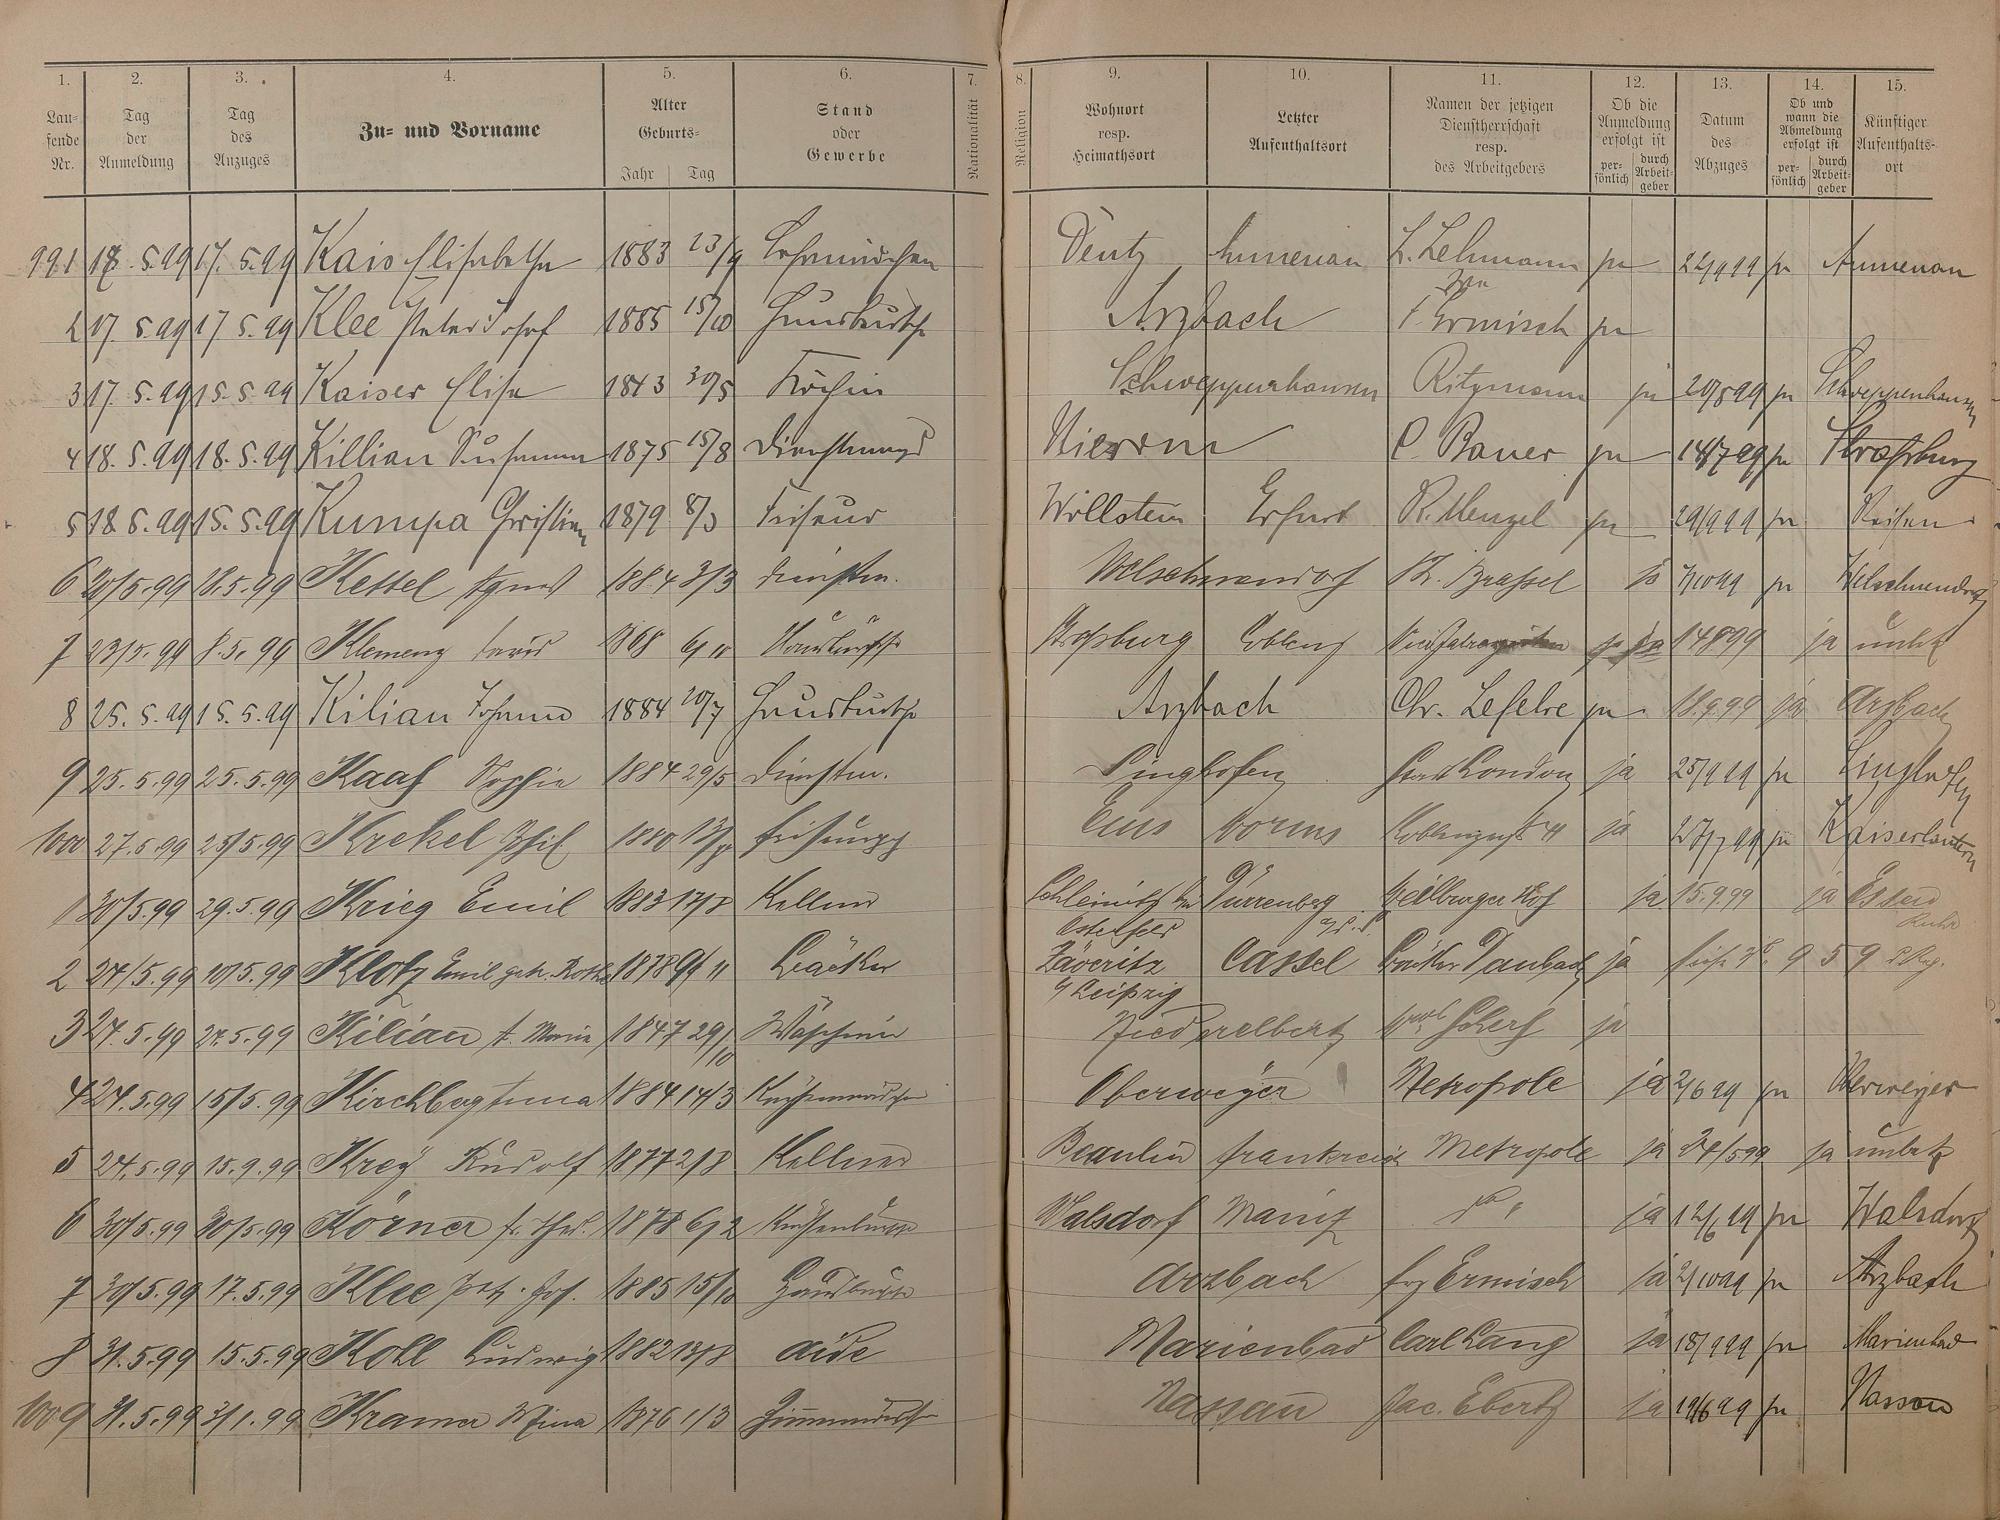 1. 2. 3. 4. 5. 6. 7. 8. 9. 10. 11. 12. 13. 14. 15.
Laufende Nr. Tag der Anmeldung Tag des Anzuges Zu- und Vorname Alter Geburts- Jahr Tag Stand oder Gewerbe Nationalität Religion Wohnort resp. Heimathsort Letzter Aufenthaltsort Namen der jetzigen Dienstherrschaft resp. des Arbeitgebers Ob die Anmeldung erfolgt ist persönlich durch Arbeitgeber Datum des Abzuges Ob und wann die Abmeldung erfolgt ist persönlich durch Arbeitgeber Künftiger Aufenthaltsort
991 17. 5. 99 Kais Elisabetha 1883 23/9 Deutz Aumenau L. Lehmann ja 22/9 99 ja Aumenau
2 17. 5. 99 17. 5. 99 Klee Peter Josef 1885 15/10 Hausbursche Arzbach F. Ermisch ja
3 17. 5. 99 15. 5. 99 Kaiser Elise 30/5 Köchin Schweppenhausen Ritzmann ja 20/8 99 ja Schweppenhausen
4 18. 5. 99 18. 5. 99 Killian Susanna 1875 15/8 Dienstmagd Nievern C. Bauer ja 14/7 99 ja Straßburg
5 18. 5. 99 15. 5. 99 Kumpa Christian 1879 8/3 Friseur Wollstein Erfurt R. Menzel ja 29/9 99 ja Reisen
6 20/5. 99 18. 5. 99 Kettel Agnes 1884 3/3 Dienstm. Welschneudorf ja ja Welschneudorf
7 23/5. 99 8. 5. 99 Klemenz 1868 6/11 Hausbursche Straßburg Coblenz ja 14 8 99 ja unbek
8 25. 5. 99 15. 5. 99 Kilian Johann 1884 20/7 Hausbursche Arzbach Chr. Lefebre ja 18. 9. 99 ja Arzbach
9 25. 5. 99 25. 5. 99 Kaaf Sophie 1884 29/5 Dienstm. Singhofen Stadt London ja 25/9 99 ja Singhofen
1000 27. 5. 99 25/5. 99 Krekel Phil 1880 Ems Worms ja 27/7 99 ja Kaiserslautern
1 30/5. 99 29. 5. 99 Krieg Emil 1883 17/8 Kellner Schleinitz bei Osterfeld Dürrenberg a/d. S. Weilburger Hof ja 15. 9. 99 ja Essen Ruhr
2 24/5. 99 10/5. 99 Klotz Emil 1878 Bäcker Zäveritz b/ Leipzig Cassel Bäcker Daubach ja
3 24. 5. 99 24. 5. 99 Kilian Maria 1847 29/10 Wäscherin Niederelbert ja
4 24. 5. 99 15/5. 99 Kirchberg Anna 1884 14/3 Küchenmädchen Oberweyer Metropole ja 2/6 99 ja Oberweyer
5 24. 5. 99 15. 9. 99 Krey Rudolf 1877 2/8 Kellner Beaulieu Frankreich Metropole ja 24/5 99 ja unbek
6 30/5. 99 30/5. 99 Körner 1878 6/2 Küchenbursche Walsdorf Mainz ja 12/6 99 ja Walsdorf
7 30/5. 99 17. 5. 99 Klee Pet. Jos. 1885 15/10 Hausbursche Arzbach Frz Ermisch ja 2/10 99 ja Arzbach
8 31. 5. 99 15. 5. 99 Koll Ludwig 1882 13/8 Aide Marienbad Carl Lang ja 18/9 99 ja Marienbad
1009 31. 5. 99 31/1. 99 Kramer Mina 1876 1/3 Zimmermädchen Nassau Jac. Ebertz ja 19/6 99 ja Nassau